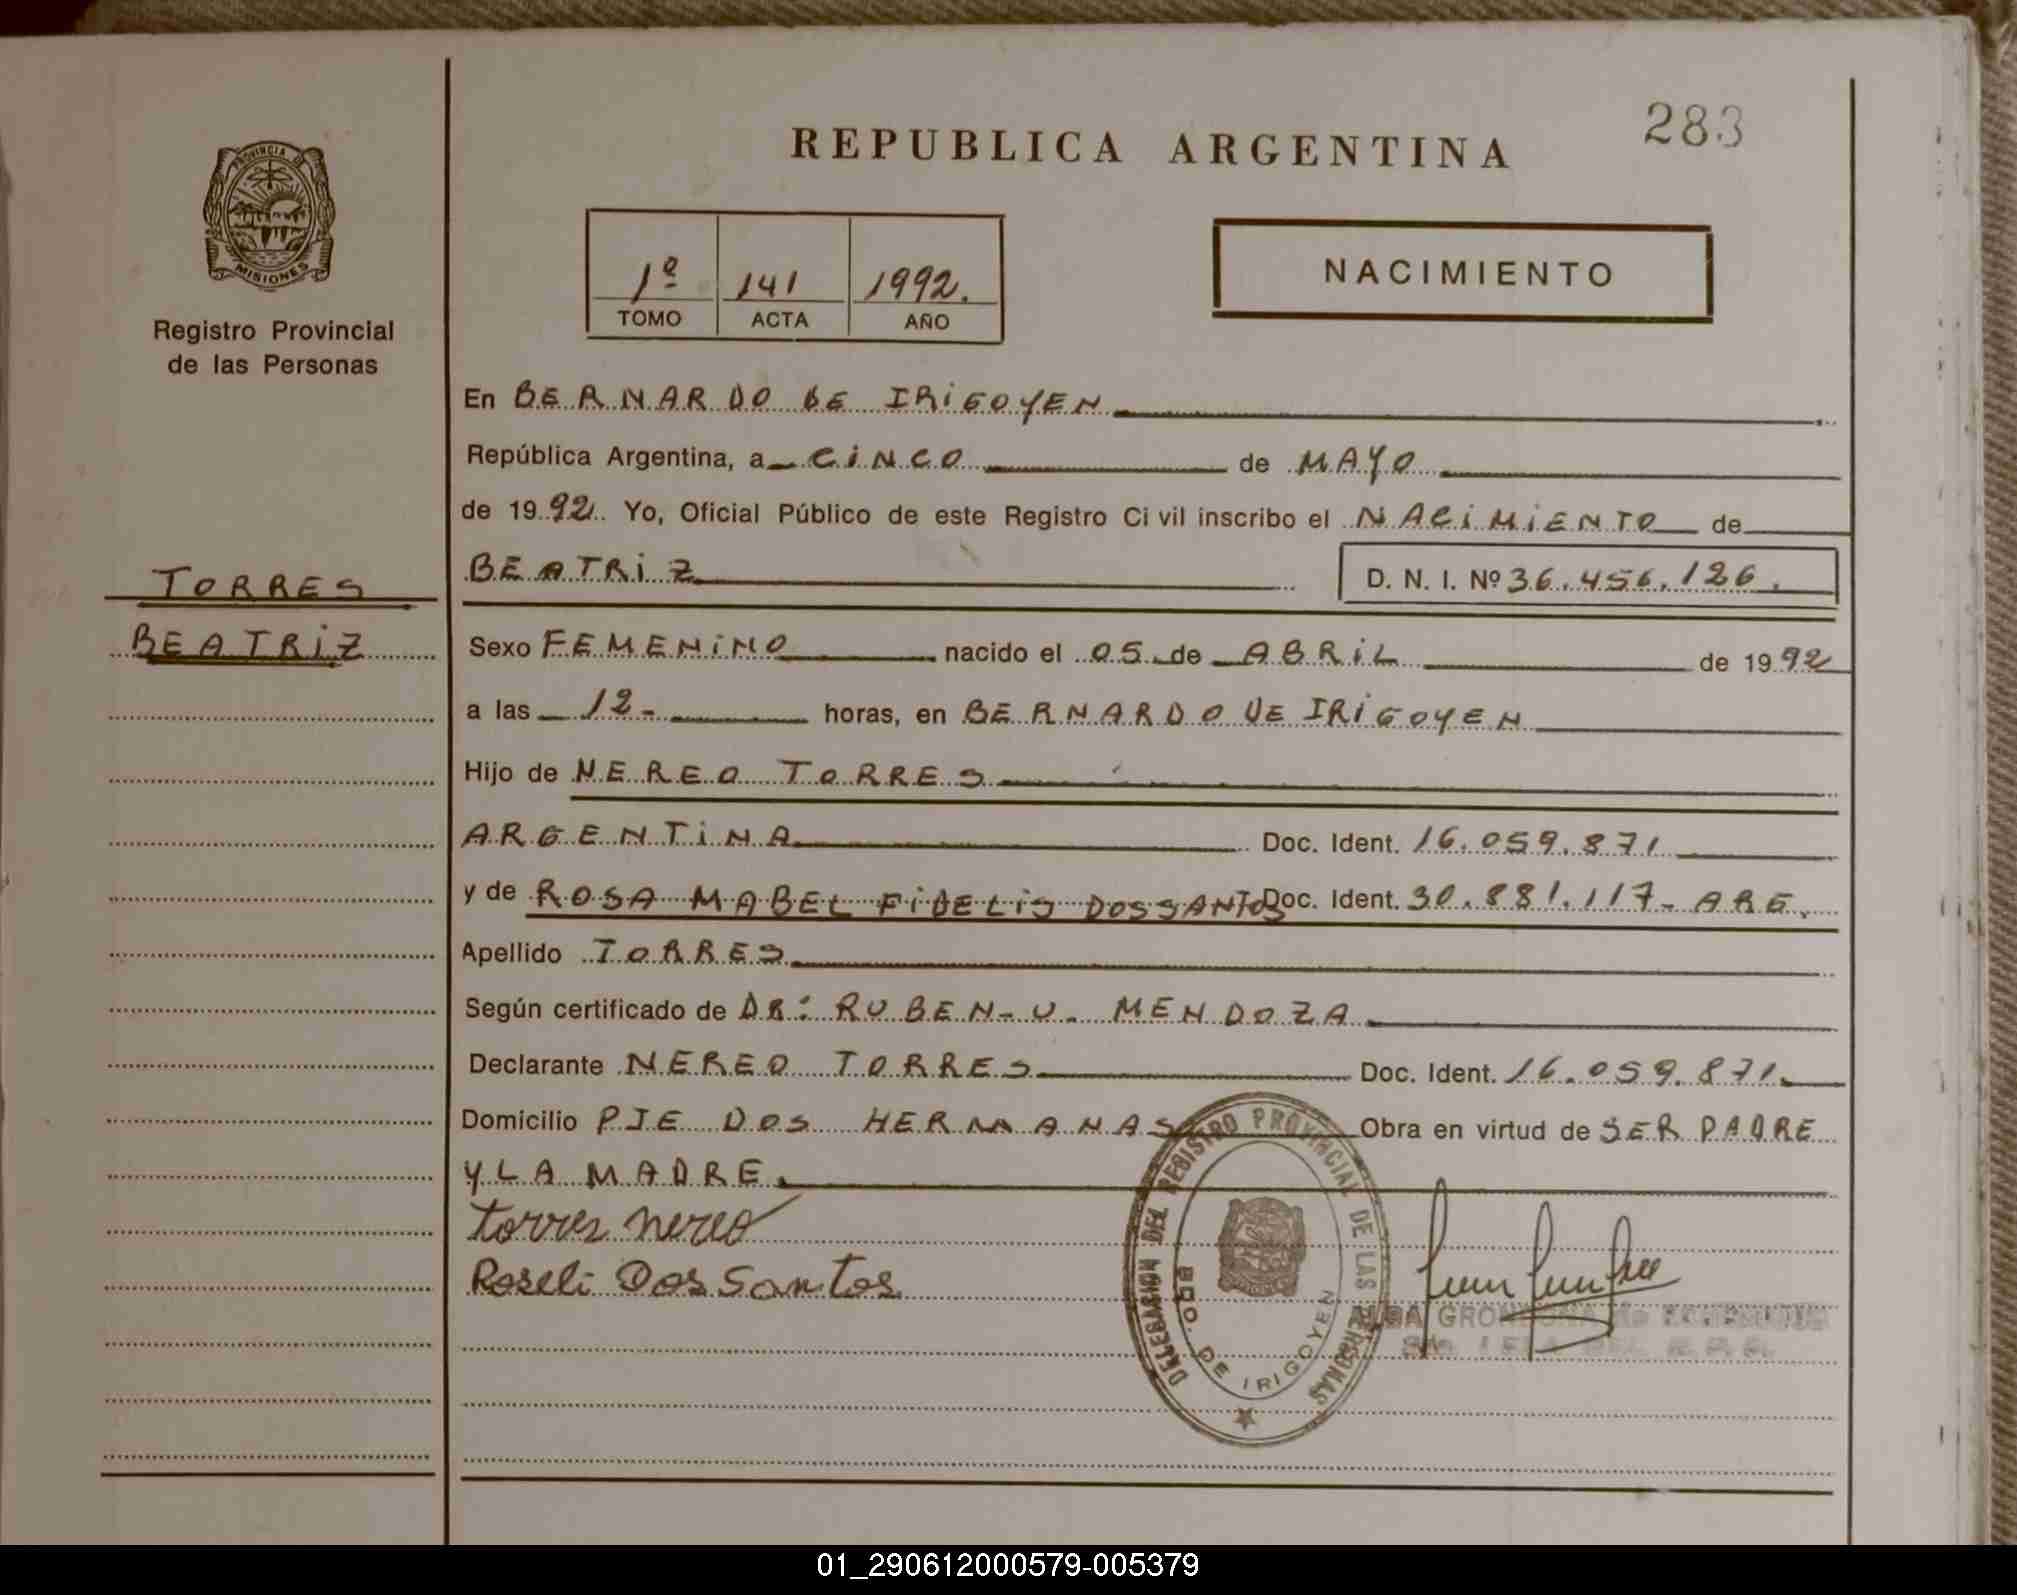 283
REPUBLICA ARGENTINA
PROVINCIA DE
MISIONES
Registro Provincial
de las Personas
1º 141 1992.
TOMO ACTA AÑO
NACIMIENTO
En BERNARDO DE IRIGOYEN
República Argentina, a CINCO de MAYO
de 1992 Yo, Oficial Público de este Registro Civil inscribo el NACIMIENTO de
TORRES
BEATRIZ
BEATRIZ D. N. I. Nº 36.456.126.
Sexo FEMENINO nacido el 05 de ABRIL de 1992
a las 12- horas, en BERNARDO DE IRIGOYEN
Hijo de NEREO TORRES
ARGENTINA Doc. Ident. 16.059.871
y de ROSA MABEL FIDELIS DOSSANTOS Doc. Ident. 30.881.117- ARG.
Apellido TORRES
Según certificado de DR: RUBEN-U. MENDOZA
Declarante NEREO TORRES Doc. Ident. 16.059.871.
Domicilio PJE DOS HERMANAS Obra en virtud de SER PADRE
Y LA MADRE.
torres nereo
Roseli Dos Santos
DELEGACION DEL REGISTRO PROVINCIAL DE LAS PERSONAS
BDO. DE IRIGOYEN
01_290612000579-005379